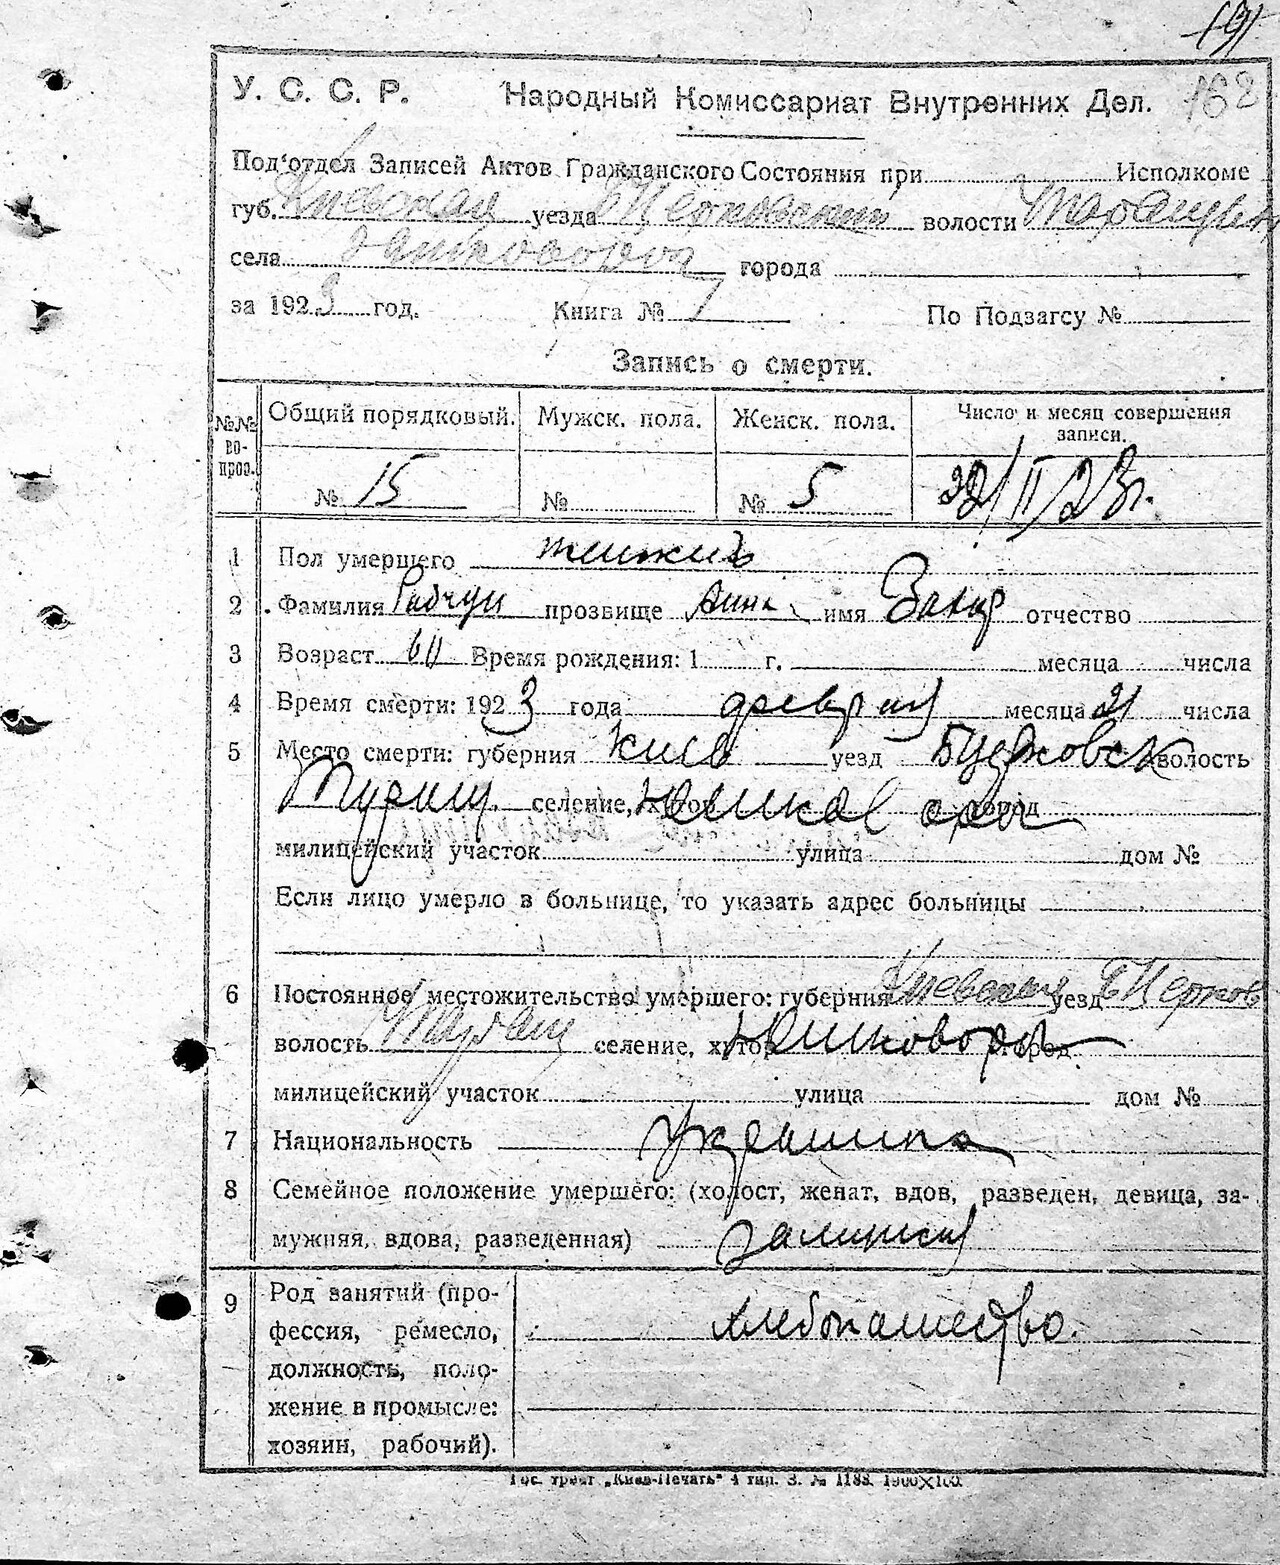 162
У. С. С. Р. Народный Комиссариат Внутренних Дел.
Под'отдел Записей Актов Гражданского Состояния при Исполкоме
губ. Киевская уезда БЦерковский волости Таращан
села города
за 1923 год. Книга № 7 По Подзагсу №
Запись о смерти.
№№ вопроз. Общий порядковый. Мужск. пола. Женск. пола. Число и месяц совершения записи.
№ 15 № № 5 22/II/23г.
1 Пол умершего
2 Фамилия Рабчун прозвище Анна имя Захар отчество
3 Возраст 60 Время рождения: 1 г. месяца числа
4 Время смерти: 1923 года февраля месяца 21 числа
5 Место смерти: губерния Киев уезд БЦерковск волость
селение, хутор город
милицейский участок улица дом №
Если лицо умерло в больнице, то указать адрес больницы
6 Постоянное местожительство умершего: губерния Киевская уезд БЦерков
волость Таращ селение, хутор город
милицейский участок улица дом №
7 Национальность Украинка
8 Семейное положение умершего: (холост, женат, вдов, разведен, девица, за-
мужняя, вдова, разведенная)
9 Род занятий (про-
фессия, ремесло, хлебопашество.
должность, поло-
жение в промысле:
хозяин, рабочий).
Гос. трест „Киев-Печать“ 4 тип. З. № 1188.